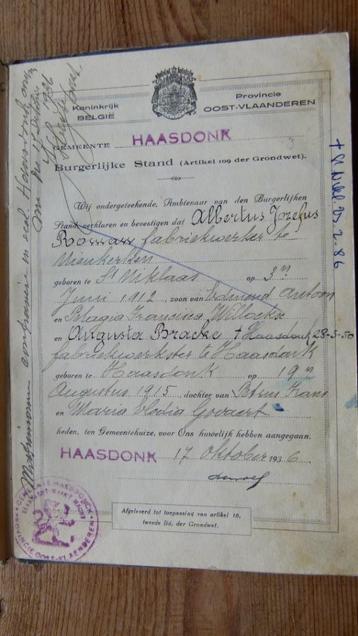 Koninkrijk
BELGIË
Provincie
OOST-VLAANDEREN
GEMEENTE HAASDONK
Burgerlijke Stand (Artikel 109 der Grondwet).
Wij ondergeteekende, Ambtenaar van den Burgerlijken
Stand, verklaren en bevestigen dat Albertus Jozefus
Roman fabriekwerker te
Nieukerken
geboren te St Niklaas op 3n
Juni 1912, zoon van Edmond Antoon
en Pelagia Francisca Willockx
en Augusta Bracke + Haasdonk 28-5-50
fabriekwerkster te Haasdonk
geboren te Haasdonk op 19n
Augustus 1915, dochter van Petrus Frans
en Maria Govaert
heden, ten Gemeentehuize, voor Ons huwelijk hebben aangegaan.
HAASDONK 17 Oktober 1936
Afgeleverd tot toepassing van artikel 16,
tweede lid, der Grondwet.
Matrimonium in eccl. Haasdonk
1936
2. 86